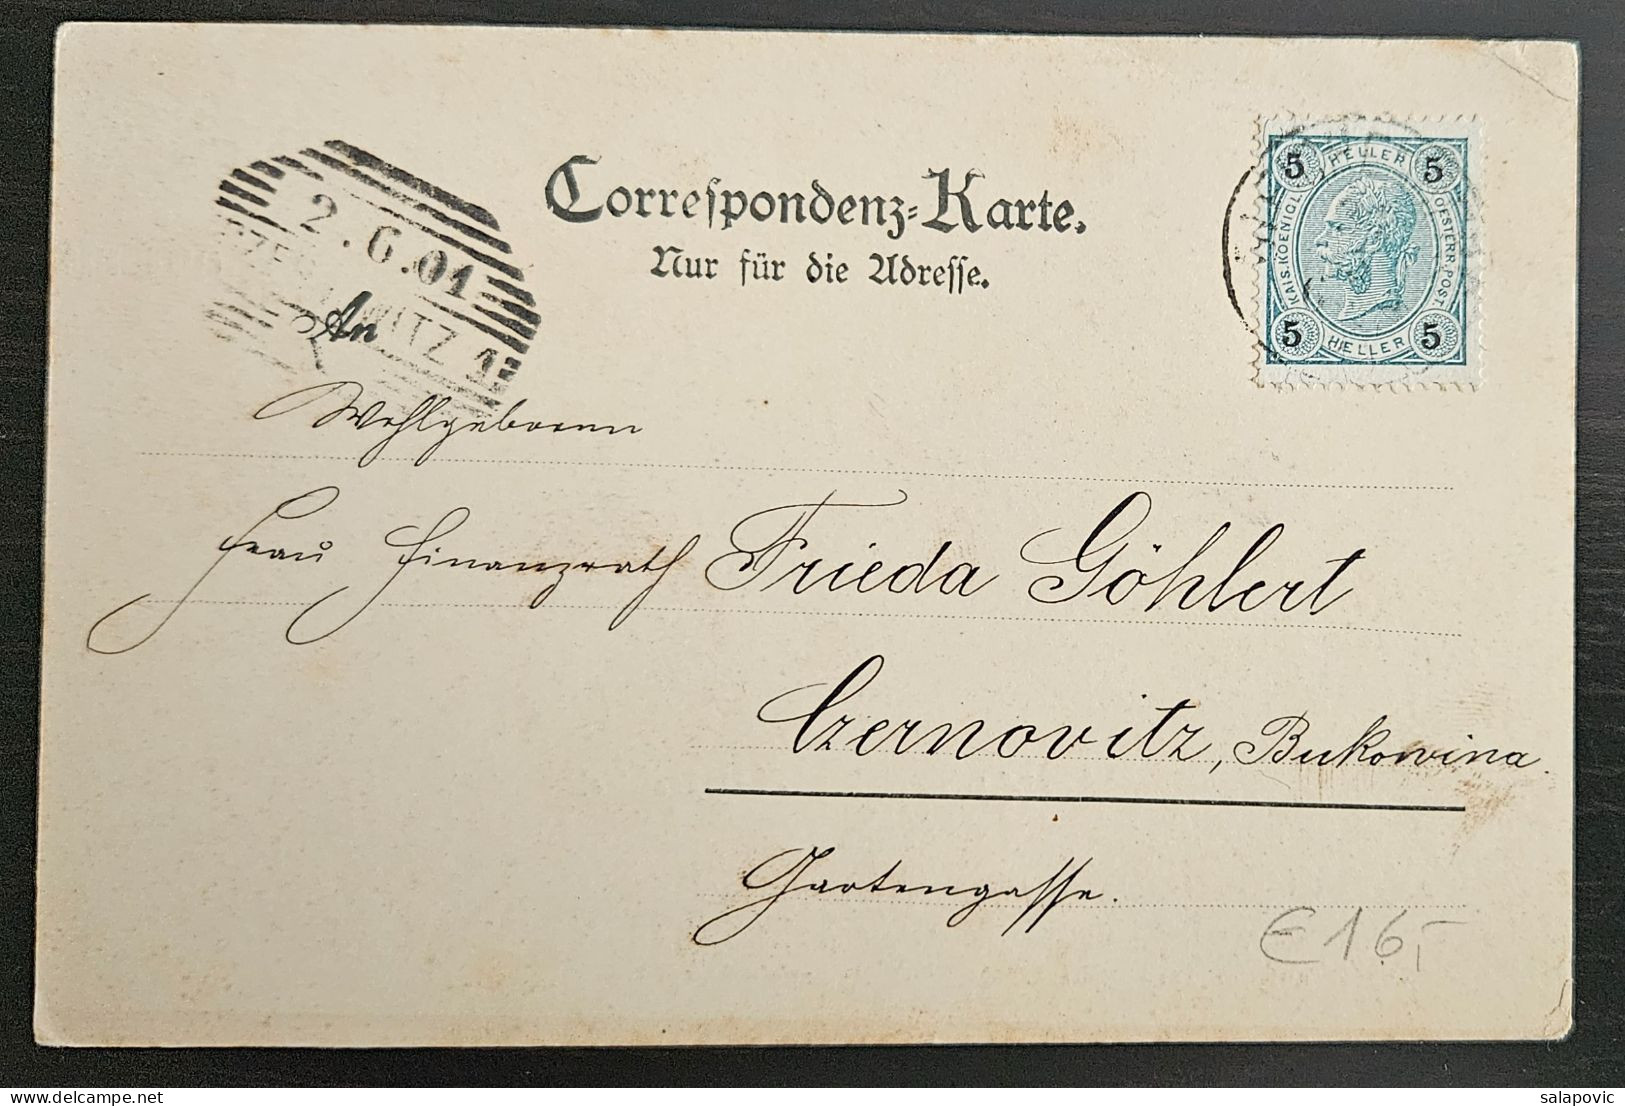 Correspondenz-Karte.
Nur für die Adresse.
2.6.01
CZERNOWITZ 1
An
5 HELLER 5
KAIS. KOENIGL. OESTERR. POST
5 HELLER 5
Wohlgeboren
Frau Finanzrath Frieda Göhlert
Czernovitz, Bukowina.
Gartengasse.
€ 16,-
salapovic